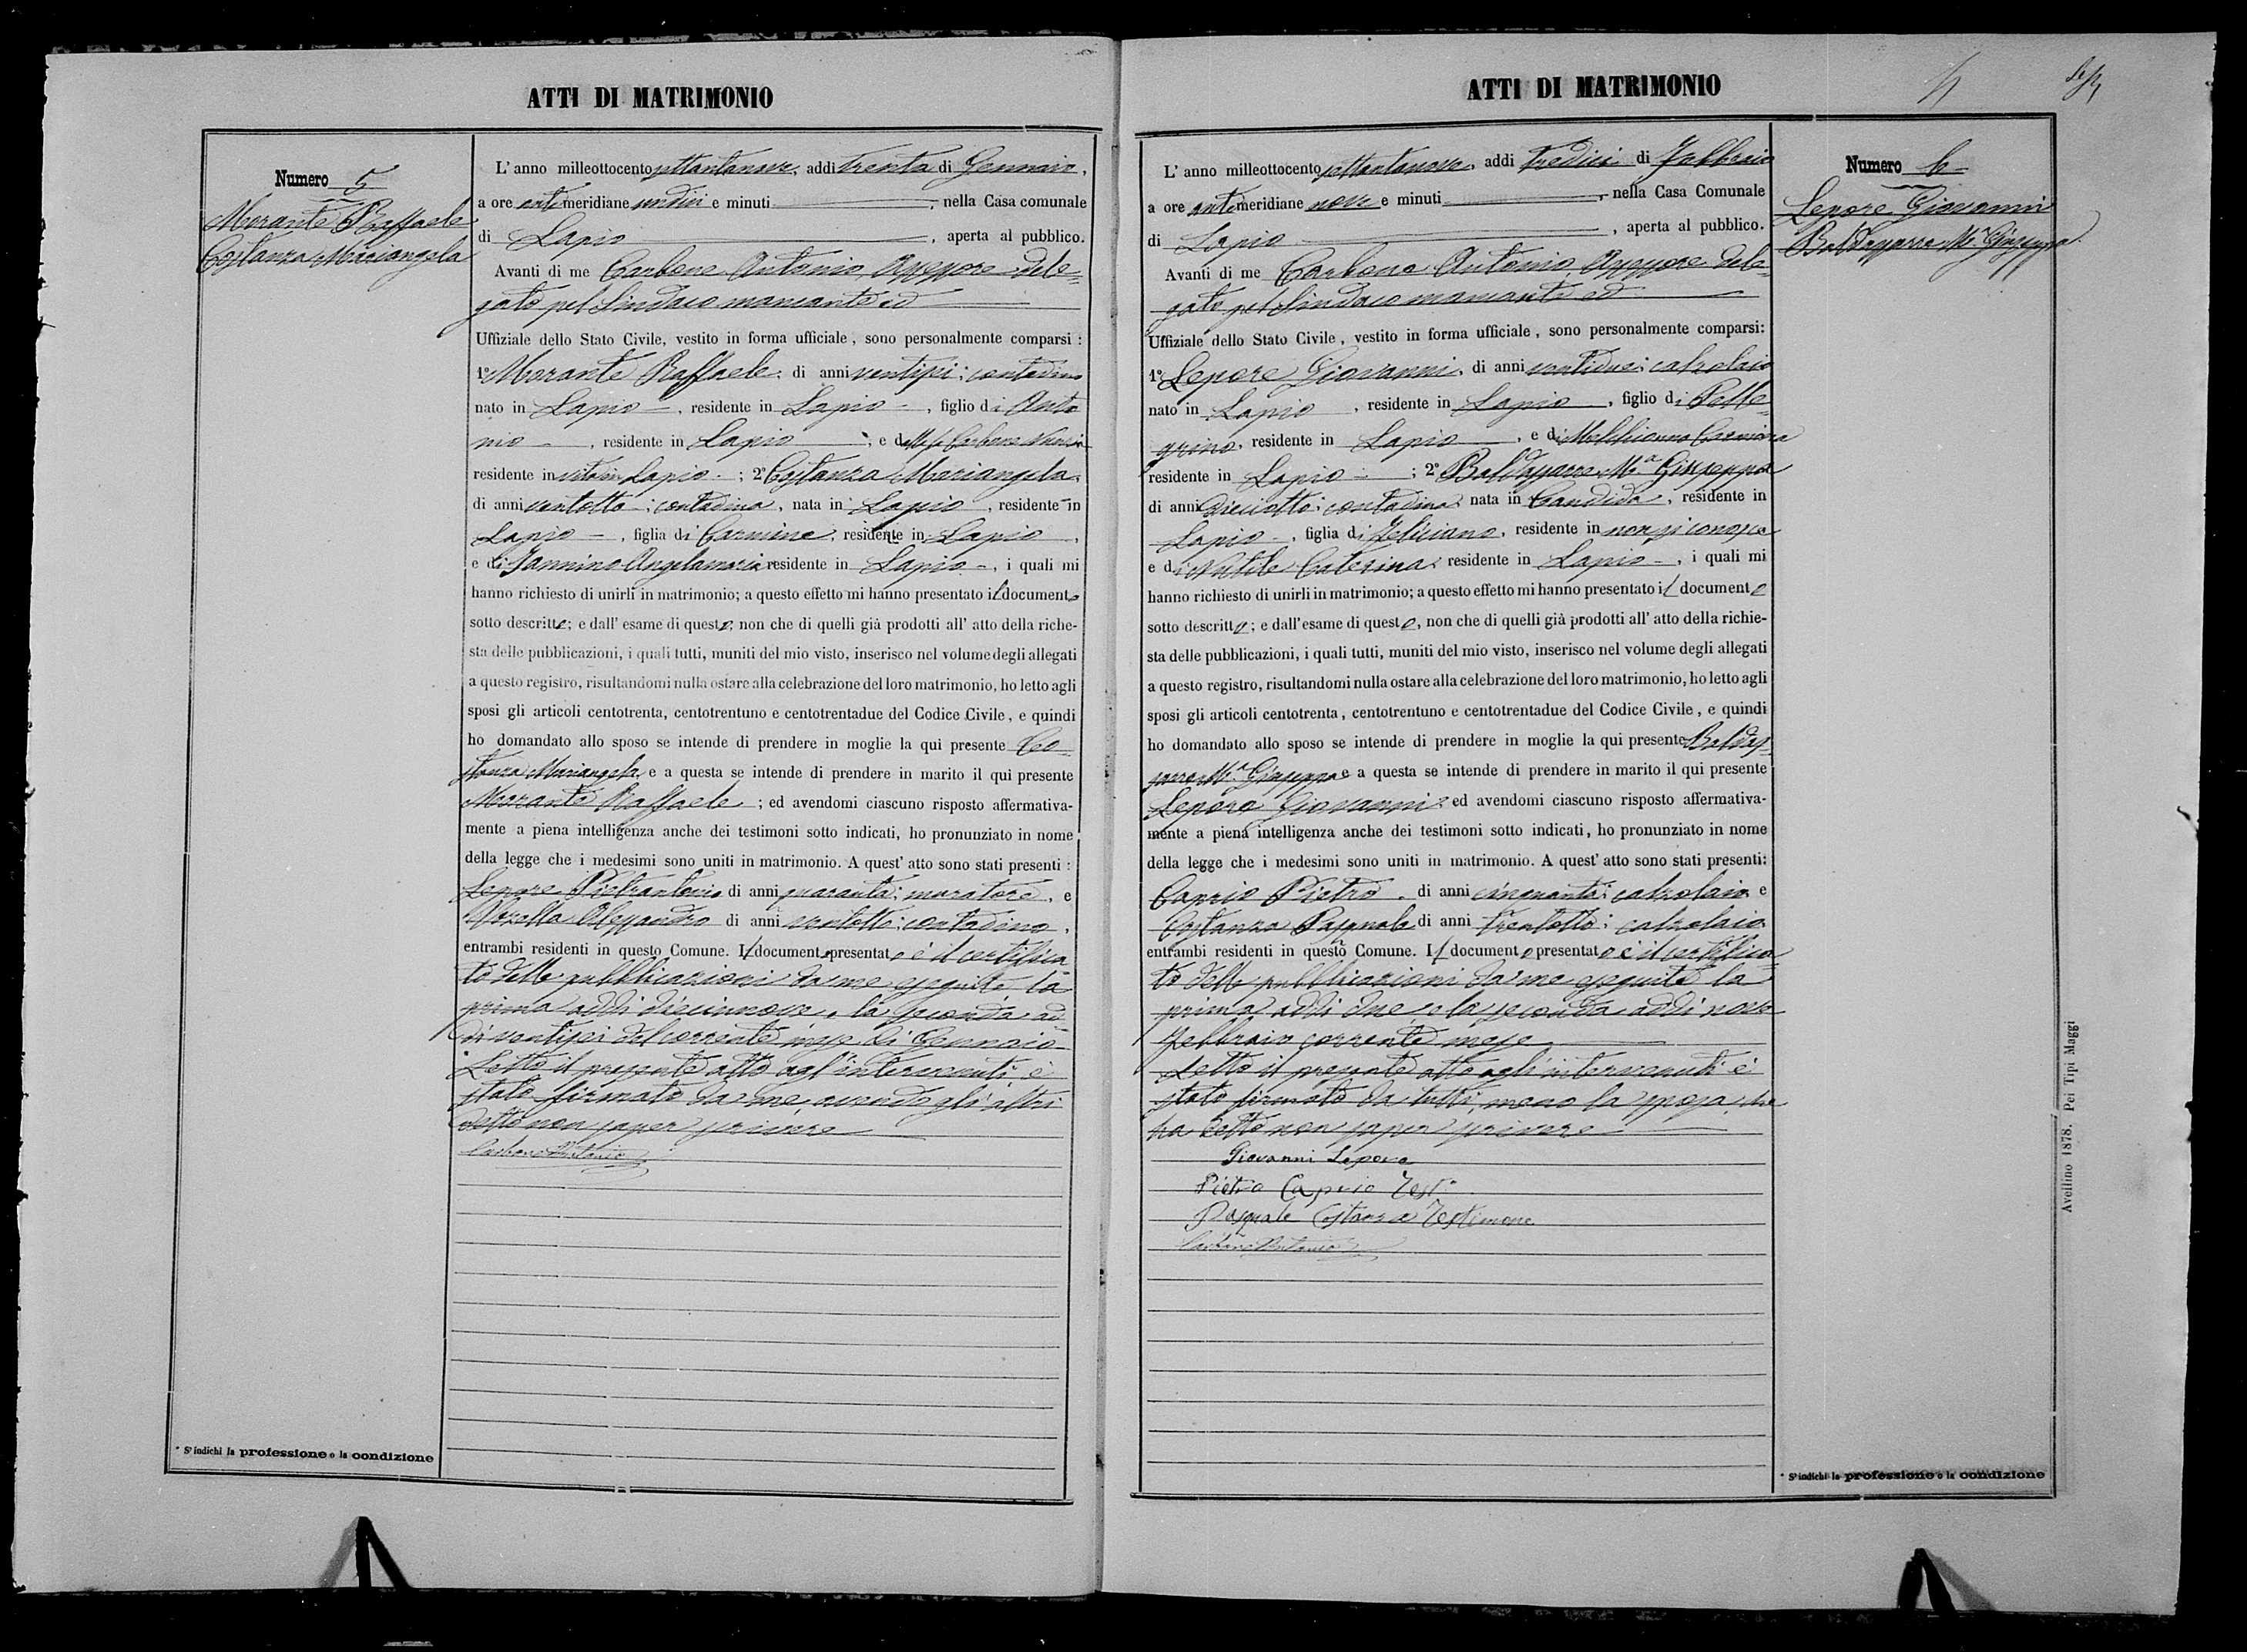 ATTI DI MATRIMONIO
Numero 5
Morante Raffaele
Costanza Mariangela
L' anno milleottocento settantanove, addi trenta di Gennaio,
a ore antimeridiane undici e minuti , nella Casa comunale
di Lapio , aperta al pubblico.
Avanti di me Carbone Antonio Assessore dele-
gato pel Sindaco mancante ed
Uffiziale dello Stato Civile, vestito in forma ufficiale, sono personalmente comparsi :
1º Morante Raffaele, di anni ventisei; contadino
nato in Lapio , residente in Lapio , figlio di Anto
nio , residente in Lapio , e della fu Carbone Nunzia
residente in vita in Lapio ; 2º Costanza Mariangela,
di anni ventotto; contadina, nata in Lapio , residente in
Lapio , figlia di Carmine, residente in Lapio ,
e di Iannino Angelamaria residente in Lapio , i quali mi
hanno richiesto di unirli in matrimonio; a questo effetto mi hanno presentato il documento
sotto descritto; e dall' esame di questo, non che di quelli già prodotti all' atto della riche-
sta delle pubblicazioni, i quali tutti, muniti del mio visto, inserisco nel volume degli allegati
a questo registro, risultandomi nulla ostare alla celebrazione del loro matrimonio, ho letto agli
sposi gli articoli centotrenta, centotrentuno e centotrentadue del Codice Civile, e quindi
ho domandato allo sposo se intende di prendere in moglie la qui presente Co-
stanza Mariangela e a questa se intende di prendere in marito il qui presente
Morante Raffaele ; ed avendomi ciascuno risposto affermativa-
mente a piena intelligenza anche dei testimoni sotto indicati, ho pronunziato in nome
della legge che i medesimi sono uniti in matrimonio. A quest' atto sono stati presenti :
Lepore Pietrantonio di anni quaranta; muratore, e
Alessandro di anni ventotto; contadino,
entrambi residenti in questo Comune. Il documento presentato è il certifica
to delle pubblicazioni da me eseguite la
prima addì diecinnove, e la seconda ad
dì ventisei del corrente mese di Gennaio
Letto il presente atto agl'intervenuti è
stato firmato da me, avendo gli altri
detto non saper scrivere
Carbone Antonio
* S'indichi la professione o la condizione
ATTI DI MATRIMONIO
Numero 6
Lepore Giovanni
Baldassarre Mª Giuseppa
L' anno milleottocento settantanove, addi tredici di Febbraio
a ore antimeridiane nove e minuti , nella Casa Comunale
di Lapio , aperta al pubblico.
Avanti di me Carbone Antonio, Assessore dele-
gato pel Sindaco mancante ed
Uffiziale dello Stato Civile, vestito in forma ufficiale, sono personalmente comparsi:
1º Lepore Giovanni, di anni ventidue; calzolaio
nato in Lapio , residente in Lapio , figlio di Pelle-
grino, residente in Lapio , e di Melchionna Carmina
residente in Lapio ; 2º Baldassarre Mª Giuseppa
di anni dieciotto; contadina, nata in Candida, residente in
Lapio , figlia di Feliciano, residente in non si conosce
e di Nutile Caterina, residente in Lapio , i quali mi
hanno richiesto di unirli in matrimonio; a questo effetto mi hanno presentato il documento
sotto descritto; e dall' esame di questo, non che di quelli già prodotti all' atto della richie-
sta delle pubblicazioni, i quali tutti, muniti del mio visto, inserisco nel volume degli allegati
a questo registro, risultandomi nulla ostare alla celebrazione del loro matrimonio, ho letto agli
sposi gli articoli centotrenta, centotrentuno e centotrentadue del Codice Civile, e quindi
ho domandato allo sposo se intende di prendere in moglie la qui presente Baldas-
sarre Mª Giuseppa e a questa se intende di prendere in marito il qui presente
Lepore Giovanni; ed avendomi ciascuno risposto affermativa-
mente a piena intelligenza anche dei testimoni sotto indicati, ho pronunziato in nome
della legge che i medesimi sono uniti in matrimonio. A quest' atto sono stati presenti:
Caprio Pietro, di anni cinquanta; calzolaio e
Costanza Pasquale di anni trentotto; calzolaio
entrambi residenti in questo Comune. Il documento presentato è il certifica-
to delle pubblicazioni da me eseguite la
prima addì due, e la seconda addì nove
Febbraio corrente mese
Letto il presente atto agli intervenuti è
stato firmato da tutti, meno la sposa, che
ha detto non saper scrivere
Giovanni Lepore
Pietro Caprio Test.e
Pasquale Costanza Testimone
Carbone Antonio
* S'indichi la professione o la condizione
Avellino 1878. Pei Tipi Maggi